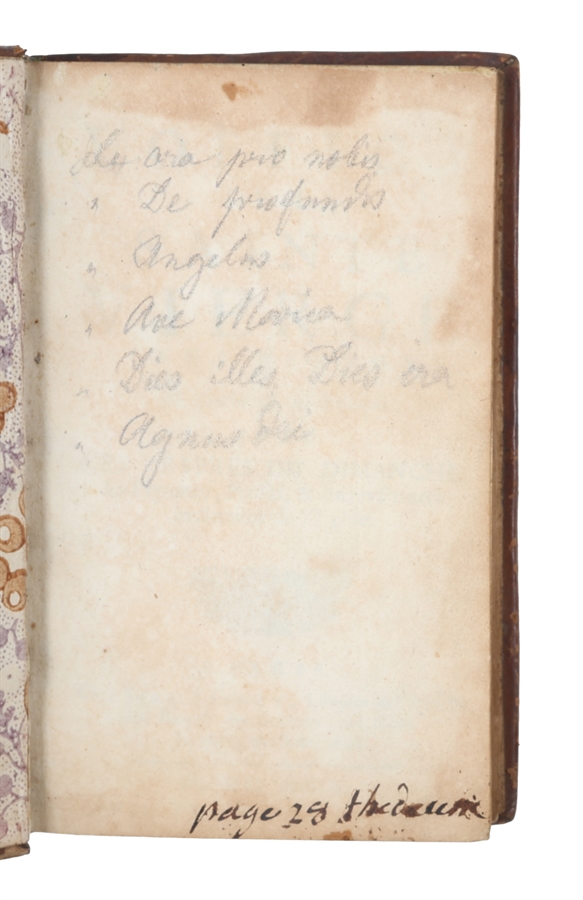 ora pro nobis
" De profundis
" Angelus
" Ave Maria
" Dies illes Dies ira
" Agnus dei
page 28 thedeum